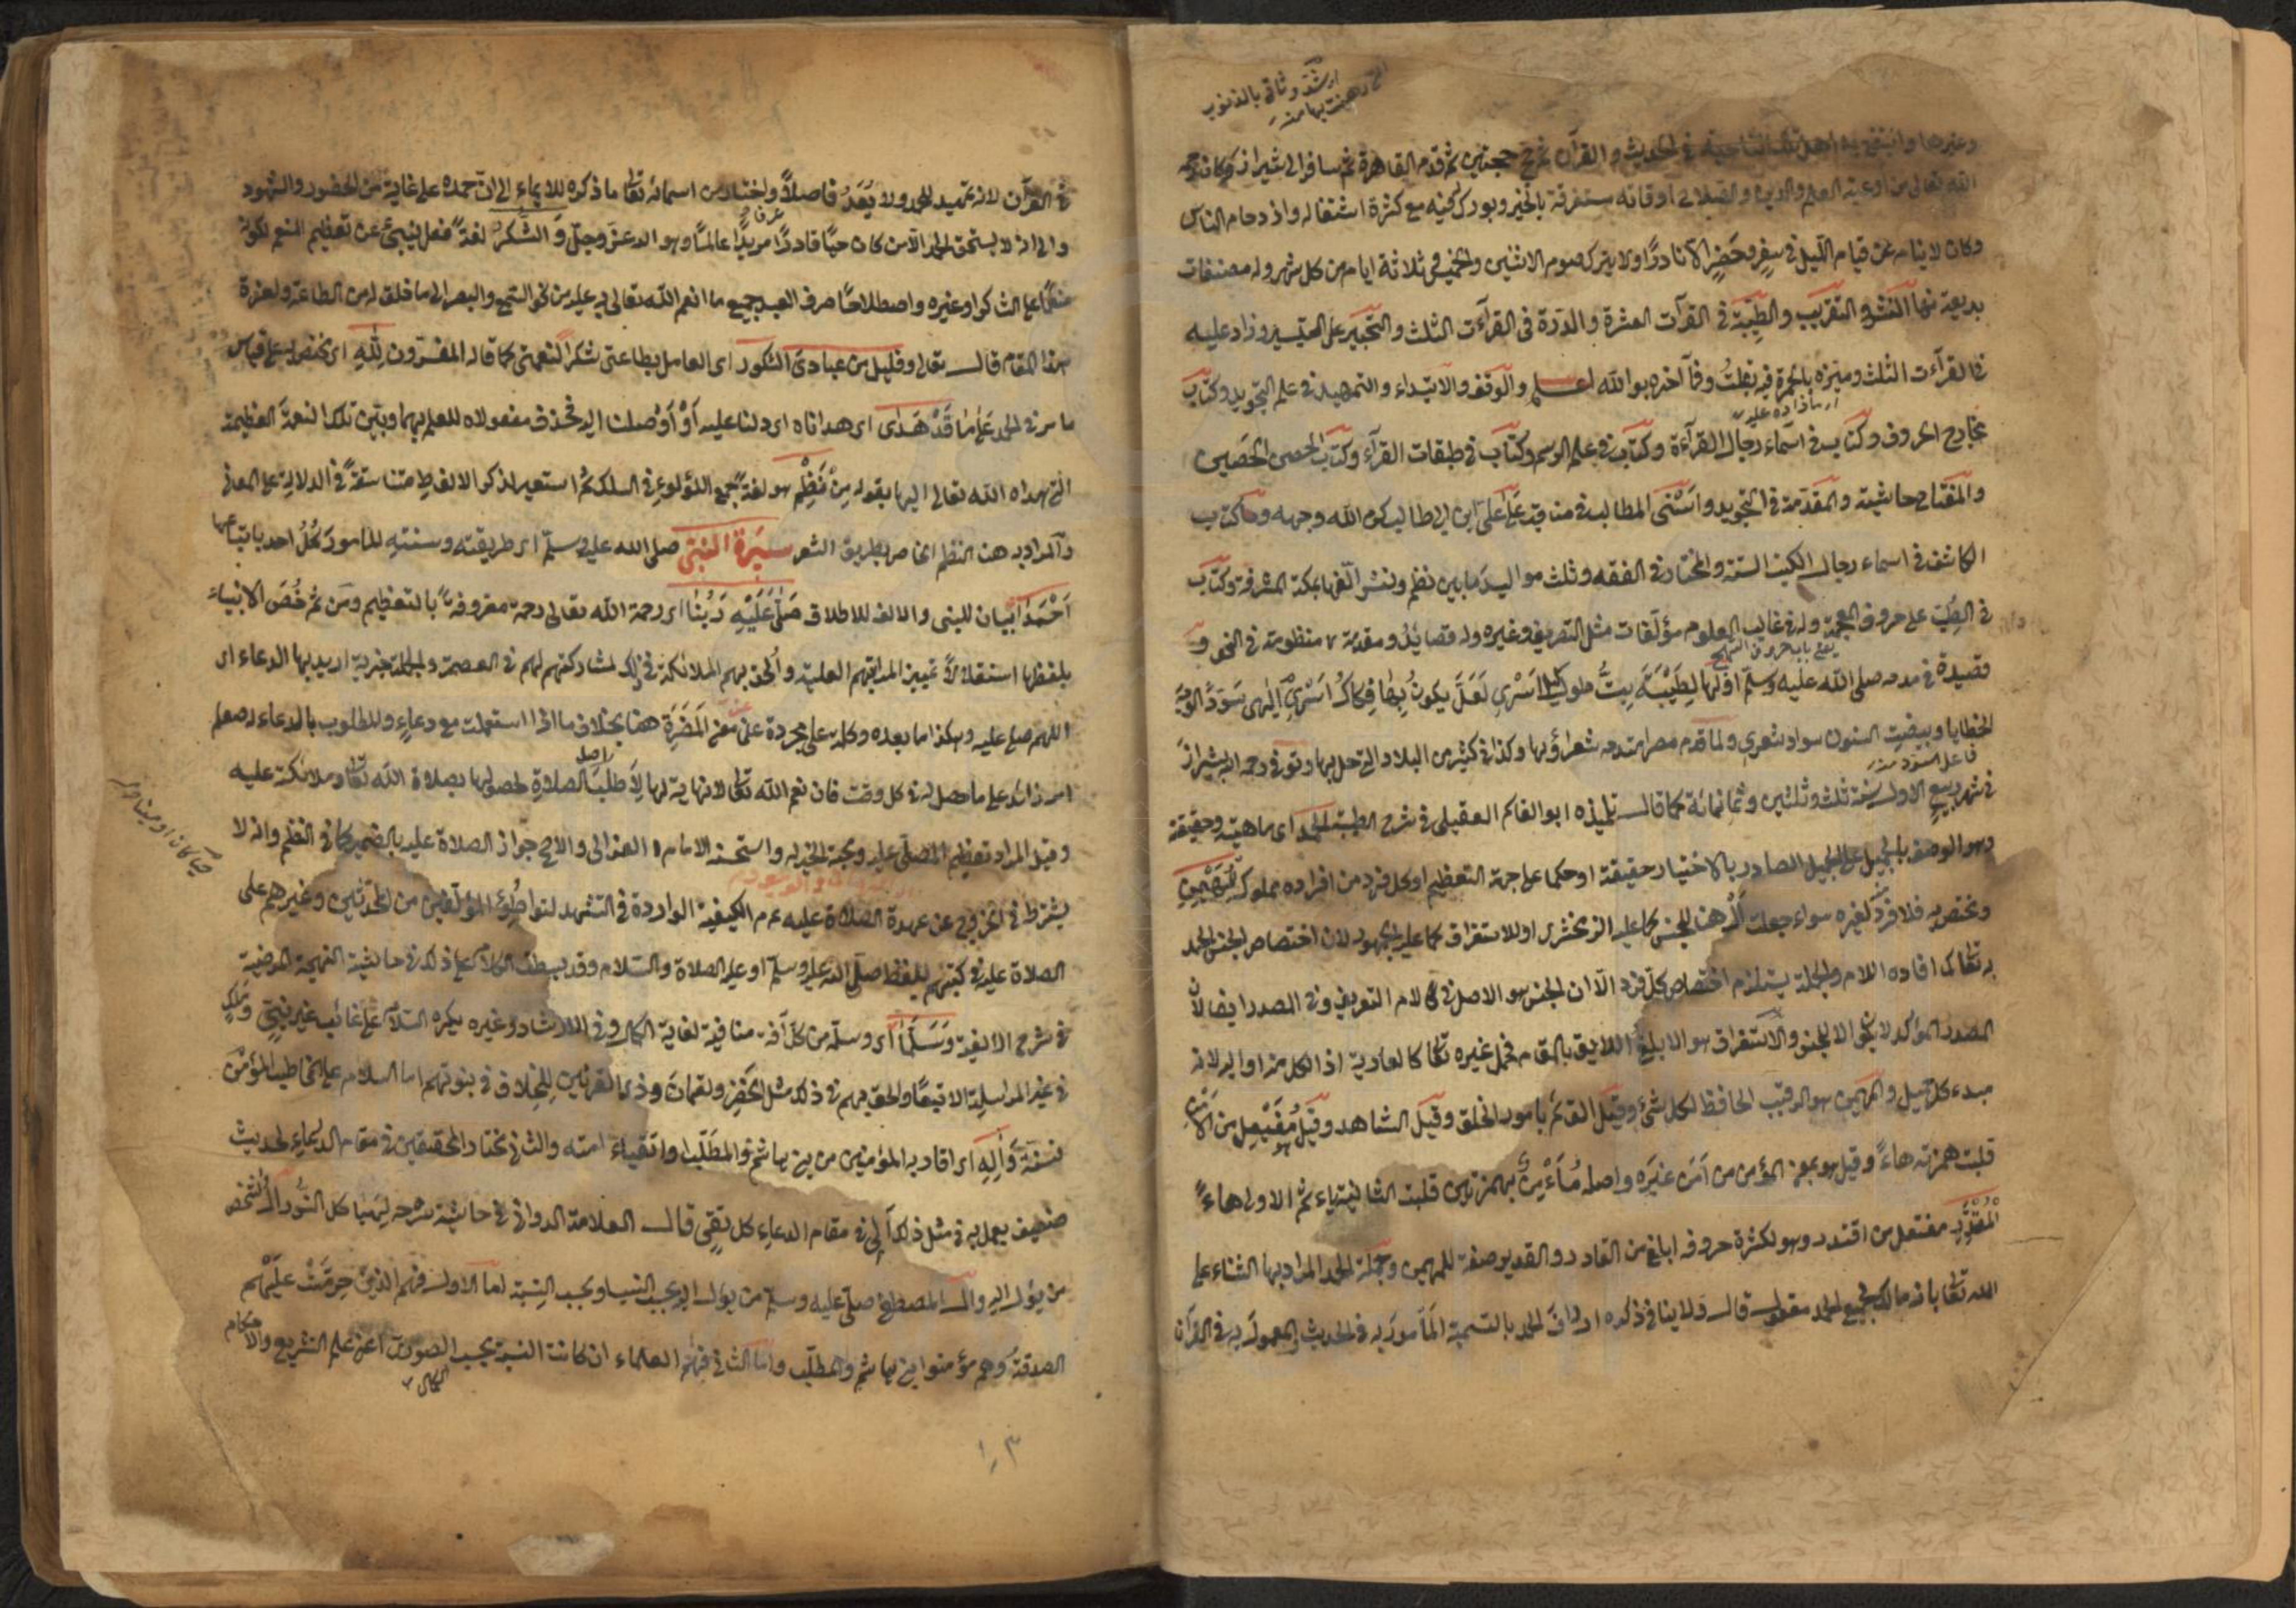 او شدّ وثاق بالذنوب
وغيرها وانتفع به اهل تلك الناحية في الحديث والقرآن ثم حج حجتين ثم قدم القاهرة ثم سافر الى شيراز وكان رحمه
الله تعالى من اوعية العلم والدين والصلاح اوقاته مستغرقة بالخير وبورك فيه مع كثرة اشتغاله وازدحام الناس
وكان لا ينام عن قيام الليل في سفر وحضر الا نادرًا ولا يترك صوم الاثنين والخميس وثلاثة ايام من كل شهر وله مصنفات
بديعة منها النشر والتقريب والطيبة في القرآت العشرة والدرة في القرآءت الثلث والتحبير على التيسير وزاد عليه
فيه القرآءت الثلث وميزه بالحمرة فيه بقلت وفي آخره بوالله اعلم والوقف والابتداء والتمهيد في علم التجويد وكتاب
مخارج الحروف وكتاب في اسماء رجال القرآءة وكتاب في علم الرسم وكتاب في طبقات القرآء وكتاب الحصن الحصين
والمفتاح حاشيته والمقدمة في التجويد واسنى المطالب في مناقب علي بن ابي طالب كرم الله وجهه وكتاب
الكاشف في اسماء رجال الكتب الستة والمختار في الفقه وثلث مواليد ما بين نظم ونثر الفها بمكة المشرفة وكتاب
في الطب على حروف المعجمة وله في غالب العلوم مؤلفات مثل التصريف وغيره وله قصايد ومقدمة منظومة في النحو و
قصيدة في مدحه صلى الله عليه وسلم اولها لطيبة بت طول الليل اسري لعل يكون بها فكاك اسري الهى سود الوجه
الخطايا وبيضت السنون سواد شعري ولما قدم مصر امتدحه شعراؤها وكذا في كثير من البلاد التي حل بها وتوفى رحمه الله بشيراز
فاعل السود منه
في شهر ربيع الاول سنة ثلث وثلثين وثمانمائة كما قال تلميذه ابو القاسم العقيلي في شرح الطيبة الحمد اى ماهيته وحقيقته
وهو الوصف بالجميل على الجميل الصادر بالاختيار حقيقة او حكما على جهة التعظيم او كل فرد من افراده مملوك للمهيمن
ومختص به فلا فرد لغيره سواء جعلت أل هنا للجنس كما عليه الزمخشرى او للاستغراق كما عليه الجمهور لان اختصاص الجنس الحمد
به تعالى كما افاده اللام والجملة يستلزم اختصاص كل فرد الا ان الجنس هو الاصل في لام التعريف وفي المصدر ايضا لان
المصدر المؤكد لا يكون الا للجنس والاستغراق هو الابلغ اللايق بالمقام فحمل غيره تعالى كالعارية اذ الكل منه او اليه لانه
مبدء كل جميل والمهيمن هو الرقيب الحافظ لكل شئ وقيل القائم بامور الخلق وقيل الشاهد وقيل مفيعل من الامن
قلبت همزته هاءً وقيل هو بمعنى المؤمن من آمن غيره واصله مُأَءْمِن بهمزتين قلبت الثانية ياء ثم الاولى هاءً
المقتدر مفتعل من اقتدر وهو لكثرة حروفه ابلغ من القادر والقدير صفة للمهيمن وجملة الحمد المراد بها الثناء على
الله تعالى بانه مالك لجميع الحمد مقول قال ولا ينافي ذكره اولا ان الحمد بالتسمية المأمور به في الحديث المعمول به في القرآن
في القرآن لانه تمهيد للحمد ولا يُعَدّ فاصلاً واختار من اسمائه تعالى ما ذكره للايماء الى ان حمده على غاية من الحضور والشهود
والى انه لا يستحق الحمد الا من كان حيا قادرًا مريدًا عالمًا وهو الله عز وجل والشكر لغةً فعل ينبئ عن تعظيم المنعم لكونه
منعمًا على الشاكر او غيره واصطلاحًا صرف العبد جميع ما انعم الله تعالى به عليه من نحو السمع والبصر الى ما خلق له من الطاعة ولعزة
هذا المقام قال تعالى وقليل من عبادي الشكور اى العامل بطاعتى شكرا لنعمتى كما قال المفسرون لِلّهِ اى مختص به على قياس
ما مر في الحمد على ما قد هدى اى هدانا له اى دلنا عليه او أوصلنا اليه فحذف مفعولاه للعلم بهما وبين تلك النعمة العظيمة
التى هداه الله تعالى اليها بقوله من نظم هو لغة جمع اللؤلؤ في السلك ثم استعير لذكر الالفاظ متناسقة في الدلالة على المعانى
والمراد به هنا النظم الخاص بطريق الشعر سيرة النبي صلى الله عليه وسلم اى طريقته وسنته المأمور كل احد باتباعها
أحمدا بيان للنبي والالف للاطلاق صلى عليه ربنا اى رحمة الله تعالى رحمة مقرونة بالتعظيم ومن ثم خص الانبياء
بلفظها استقلالاً تمييز المرتبتهم العلية وألحق بهم الملائكة في ذلك لمشاركتهم لهم في العصمة والجملة خبرية اريد بها الدعاء اى
اللهم صل عليه وهكذا ما بعده وكلمة على مجردة عن معنى المضرة هنا بخلاف ما اذا استعملت مع دعاء والمطلوب بالدعاء له صلعم
امر زائد على ما حصل له في كل وقت فان نعم الله تعالى لا نهاية لها لا طلب اصل الصلاة لحصولها بصلاة الله تعالى وملائكته عليه
وقيل المراد تعظيم المصلى عليه ومحبة الخير له واستحسنه الامام الغزالى والاصح جواز الصلاة عليه بالضمير كما في النظم وانه لا
حيا كان او ميتا
يشترط في الخروج عن عهدة الصلاة عليه عم الكيفية الواردة في التشهد لتواطؤ المؤلفين من المحدثين وغيرهم على
الصلاة عليه في كتبهم بلفظ صلى الله عليه وسلم او عليه الصلاة والسلام وقد بسطت الكلام على ذلك في حاشية النهجة المرضية
في شرح الالفية وسلما اى وسلمه من كل آفة منافية لغاية الكمال وفي الارشاد وغيره يكره السلام على غائب غير نبي وملك
في غير المراسلة الا تبعًا والحق بهم في ذلك مثل الخضر ولقمان وذي القرنين للخلاف في نبوتهم اما السلام على المخاطب المؤمن
فسنة وآله اى اقاربه المؤمنين من بني هاشم والمطلب او اتقياء امته والثاني مختار المحققين في مقام الدعاء لحديث
ضعيف يعمل به في مثل ذلك آلى في مقام الدعاء كل تقى قال العلامة الدواني في حاشية شرحه لهياكل النور آل الشخص
من يؤل اليه وال المصطفى صلى عليه وسلم من يؤل اليه بحسب النسب او بحسب النسبة اما الاول فهم الذين حرمت عليهم
الصدقة وهم مؤمنوا بني هاشم والمطلب واما الثاني فهم العلماء ان كانت النسبة بحسب الكمال الصورى اعنى علم التشريع والاحكام
١٠٣